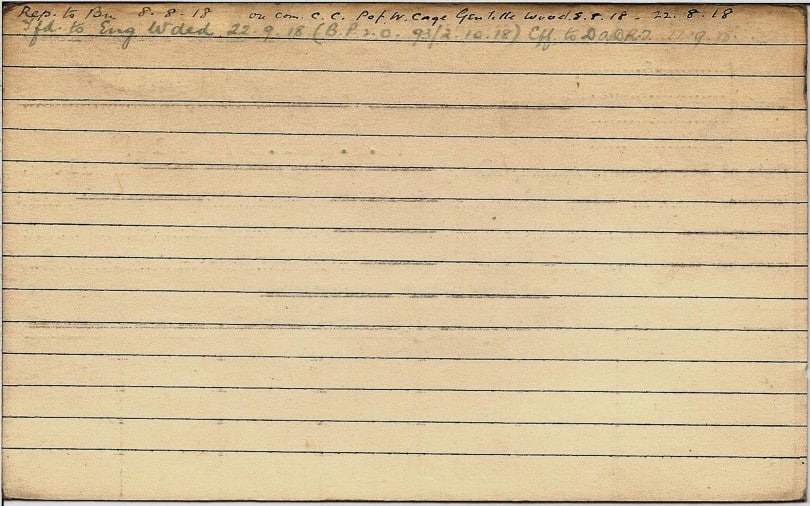 Rep. to Bn 8.8.18 on com. C.C. P.of.W. Cage Gentelle Wood 8.8.18 - 22.8.18
Tfd. to Eng Wded 22.9.18 (B.P 2.O. 93/2.10.18) Cff to 9.18